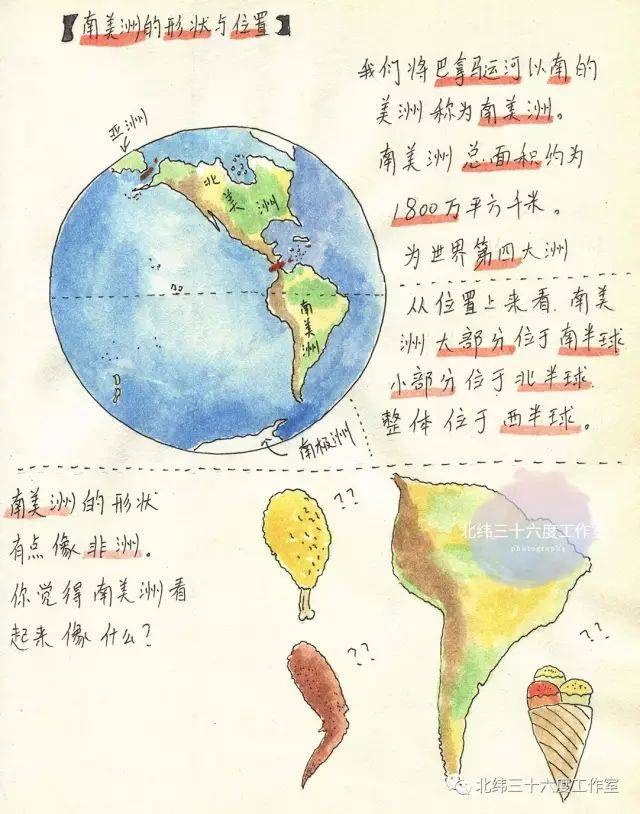 【南美洲的形状与位置】
我们将巴拿马运河以南的
美洲称为南美洲。
南美洲总面积约为
1800万平方千米。
为世界第四大洲
从位置上来看,南美
洲大部分位于南半球
小部分位于北半球.
整体位于西半球。
亚洲
北美洲
南美洲
南极洲
南美洲的形状
有点像非洲。
你觉得南美洲看
起来像什么?
??
??
??
北纬三十六度工作室
photography
北纬三十六度工作室